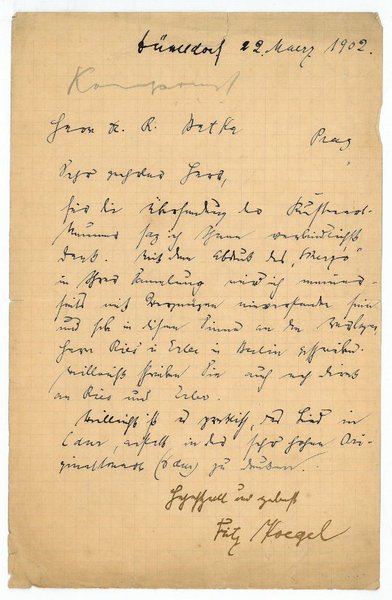 Düsseldorf 22. Maerz 1902.
Komponist
Herrn A. R. Prag
Sehr geehrter Herr,
für die Übersendung der
Nummer sag ich Ihnen verbindlichst
Dank. Mit dem Abdruck des
in Ihrer Sammlung wird ich meiner-
seits mit Vergnügen einverstanden sein
und hab in diesem Sinne an den Verleger
Herrn Ries u. Erler in Berlin geschrieben.
Vielleicht schreiben Sie auch noch direkt
an Ries und Erler.
Vielleicht ist es praktisch, das Lied in
C dur, anstatt in der sehr hohen Ori-
ginaltonart zu drucken.
Hochachtungsvoll und ergebenst
Fritz Koegel